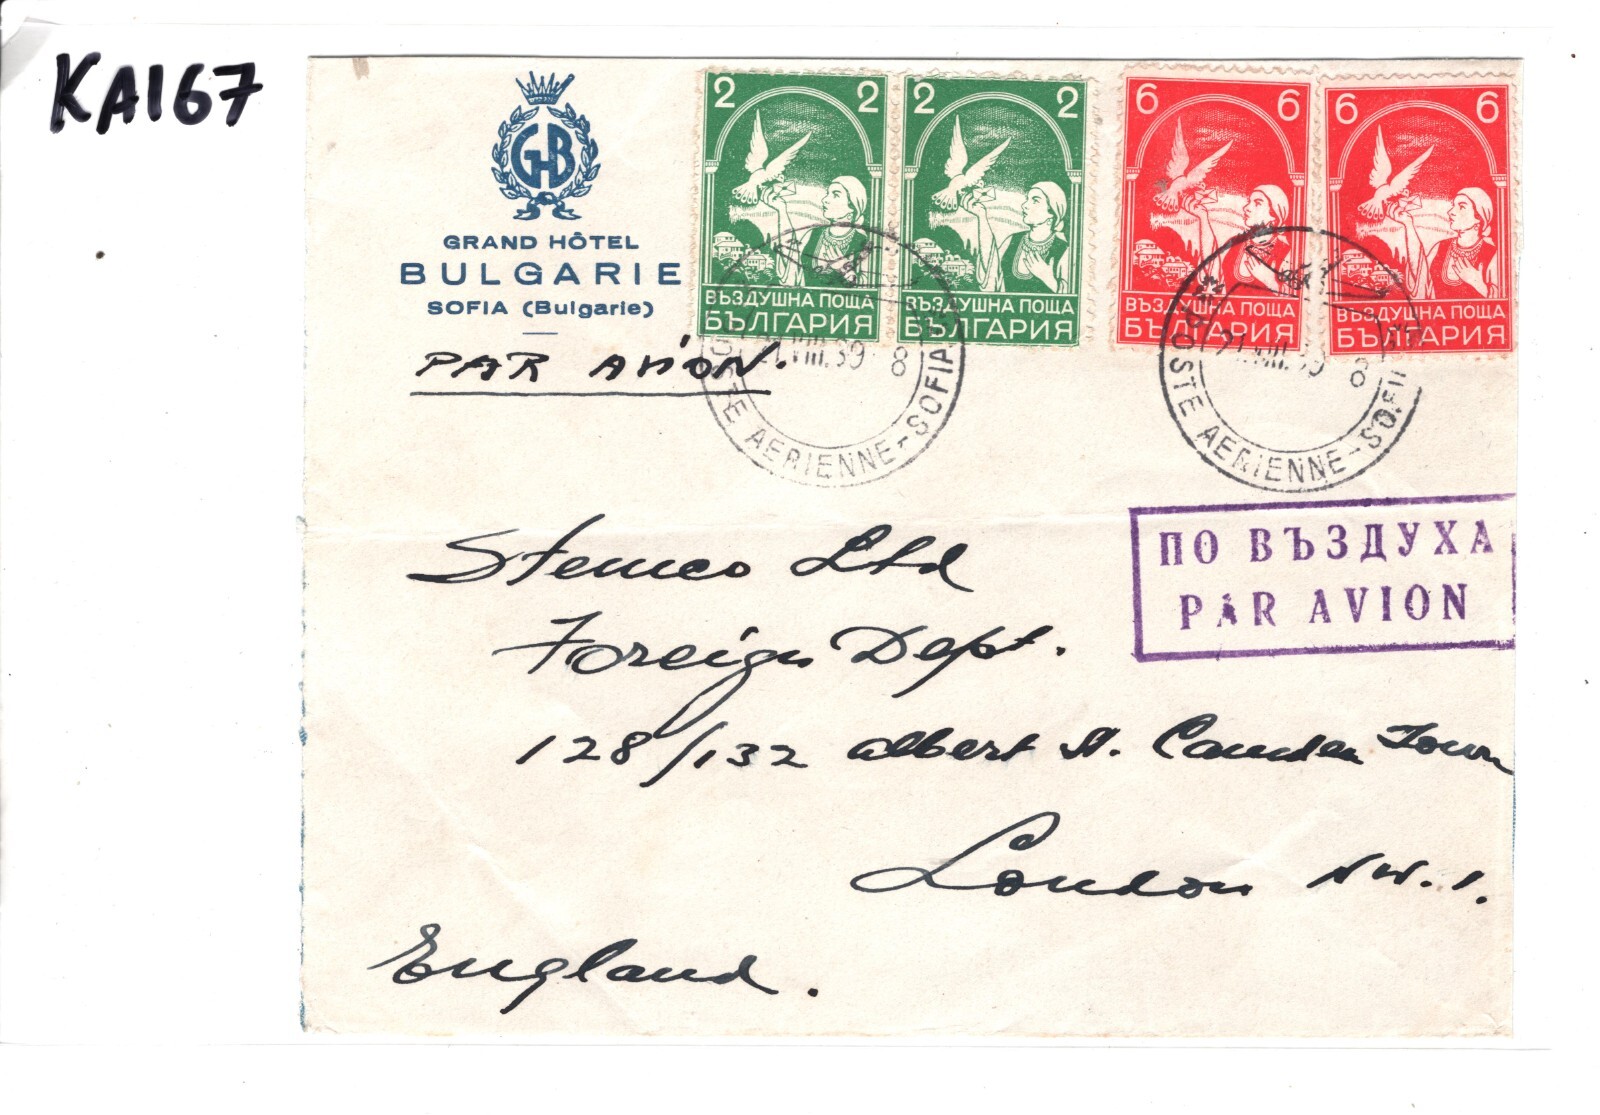 KA167
GHB
GRAND HÔTEL
BULGARIE
SOFIA (Bulgarie)
PAR AVION.
2 2
ВЪЗДУШНА ПОЩА
БЪЛГАРИЯ
2 2
ВЪЗДУШНА ПОЩА
БЪЛГАРИЯ
6 6
ВЪЗДУШНА ПОЩА
БЪЛГАРИЯ
6 6
ВЪЗДУШНА ПОЩА
БЪЛГАРИЯ
VIII.39 8
POSTE AERIENNE-SOFIA
21.VIII.39 8
POSTE AERIENNE-SOFIA
ПО ВЪЗДУХА
PAR AVION
Stemco Ltd
Foreign Dept.
128/132 Albert St. Camden Town
London N.W.1.
England.